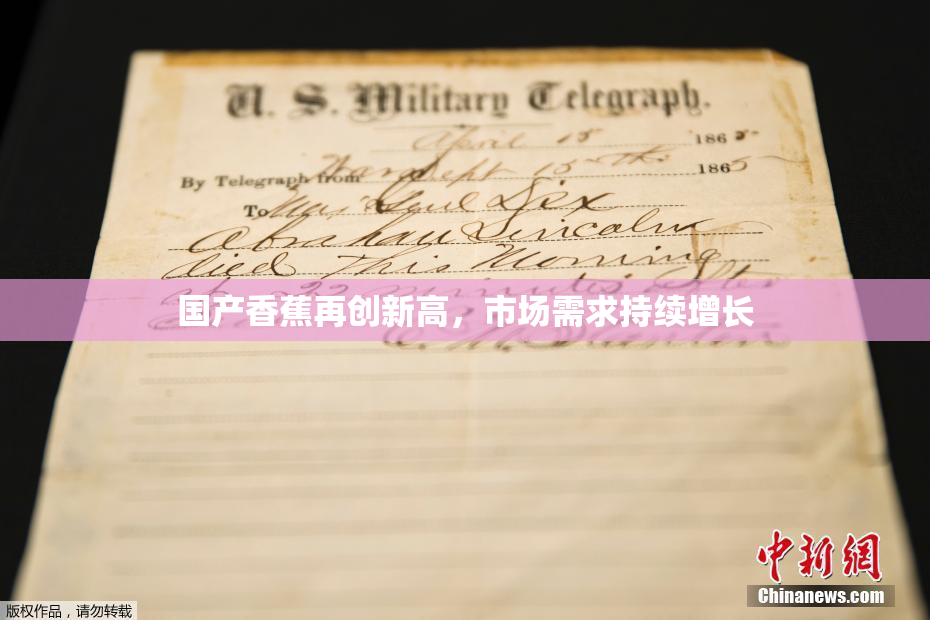 U. S. Military Telegraph.
April 15 1865
By Telegraph from War Dept 15th 1865
To Maj Genl Dix
Abraham Lincoln
died This Morning
at 22 minutes After
国产香蕉再创新高，市场需求持续增长
E. M. Stanton
中新网
Chinanews.com
版权作品，请勿转载